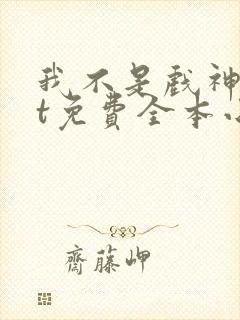 我不是戏神
t免費全本小
齋藤岬